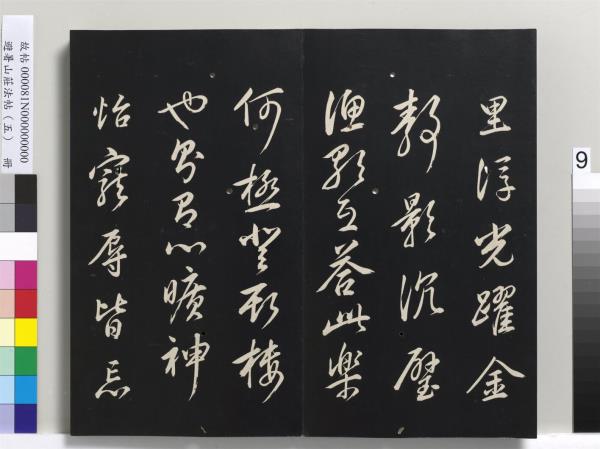 里浮光躍金
靜影沉璧
漁歌互答此樂
何極登斯樓
也則有心曠神
怡寵辱皆忘
故帖 000081N000000000
避暑山莊法帖(五) 冊
9